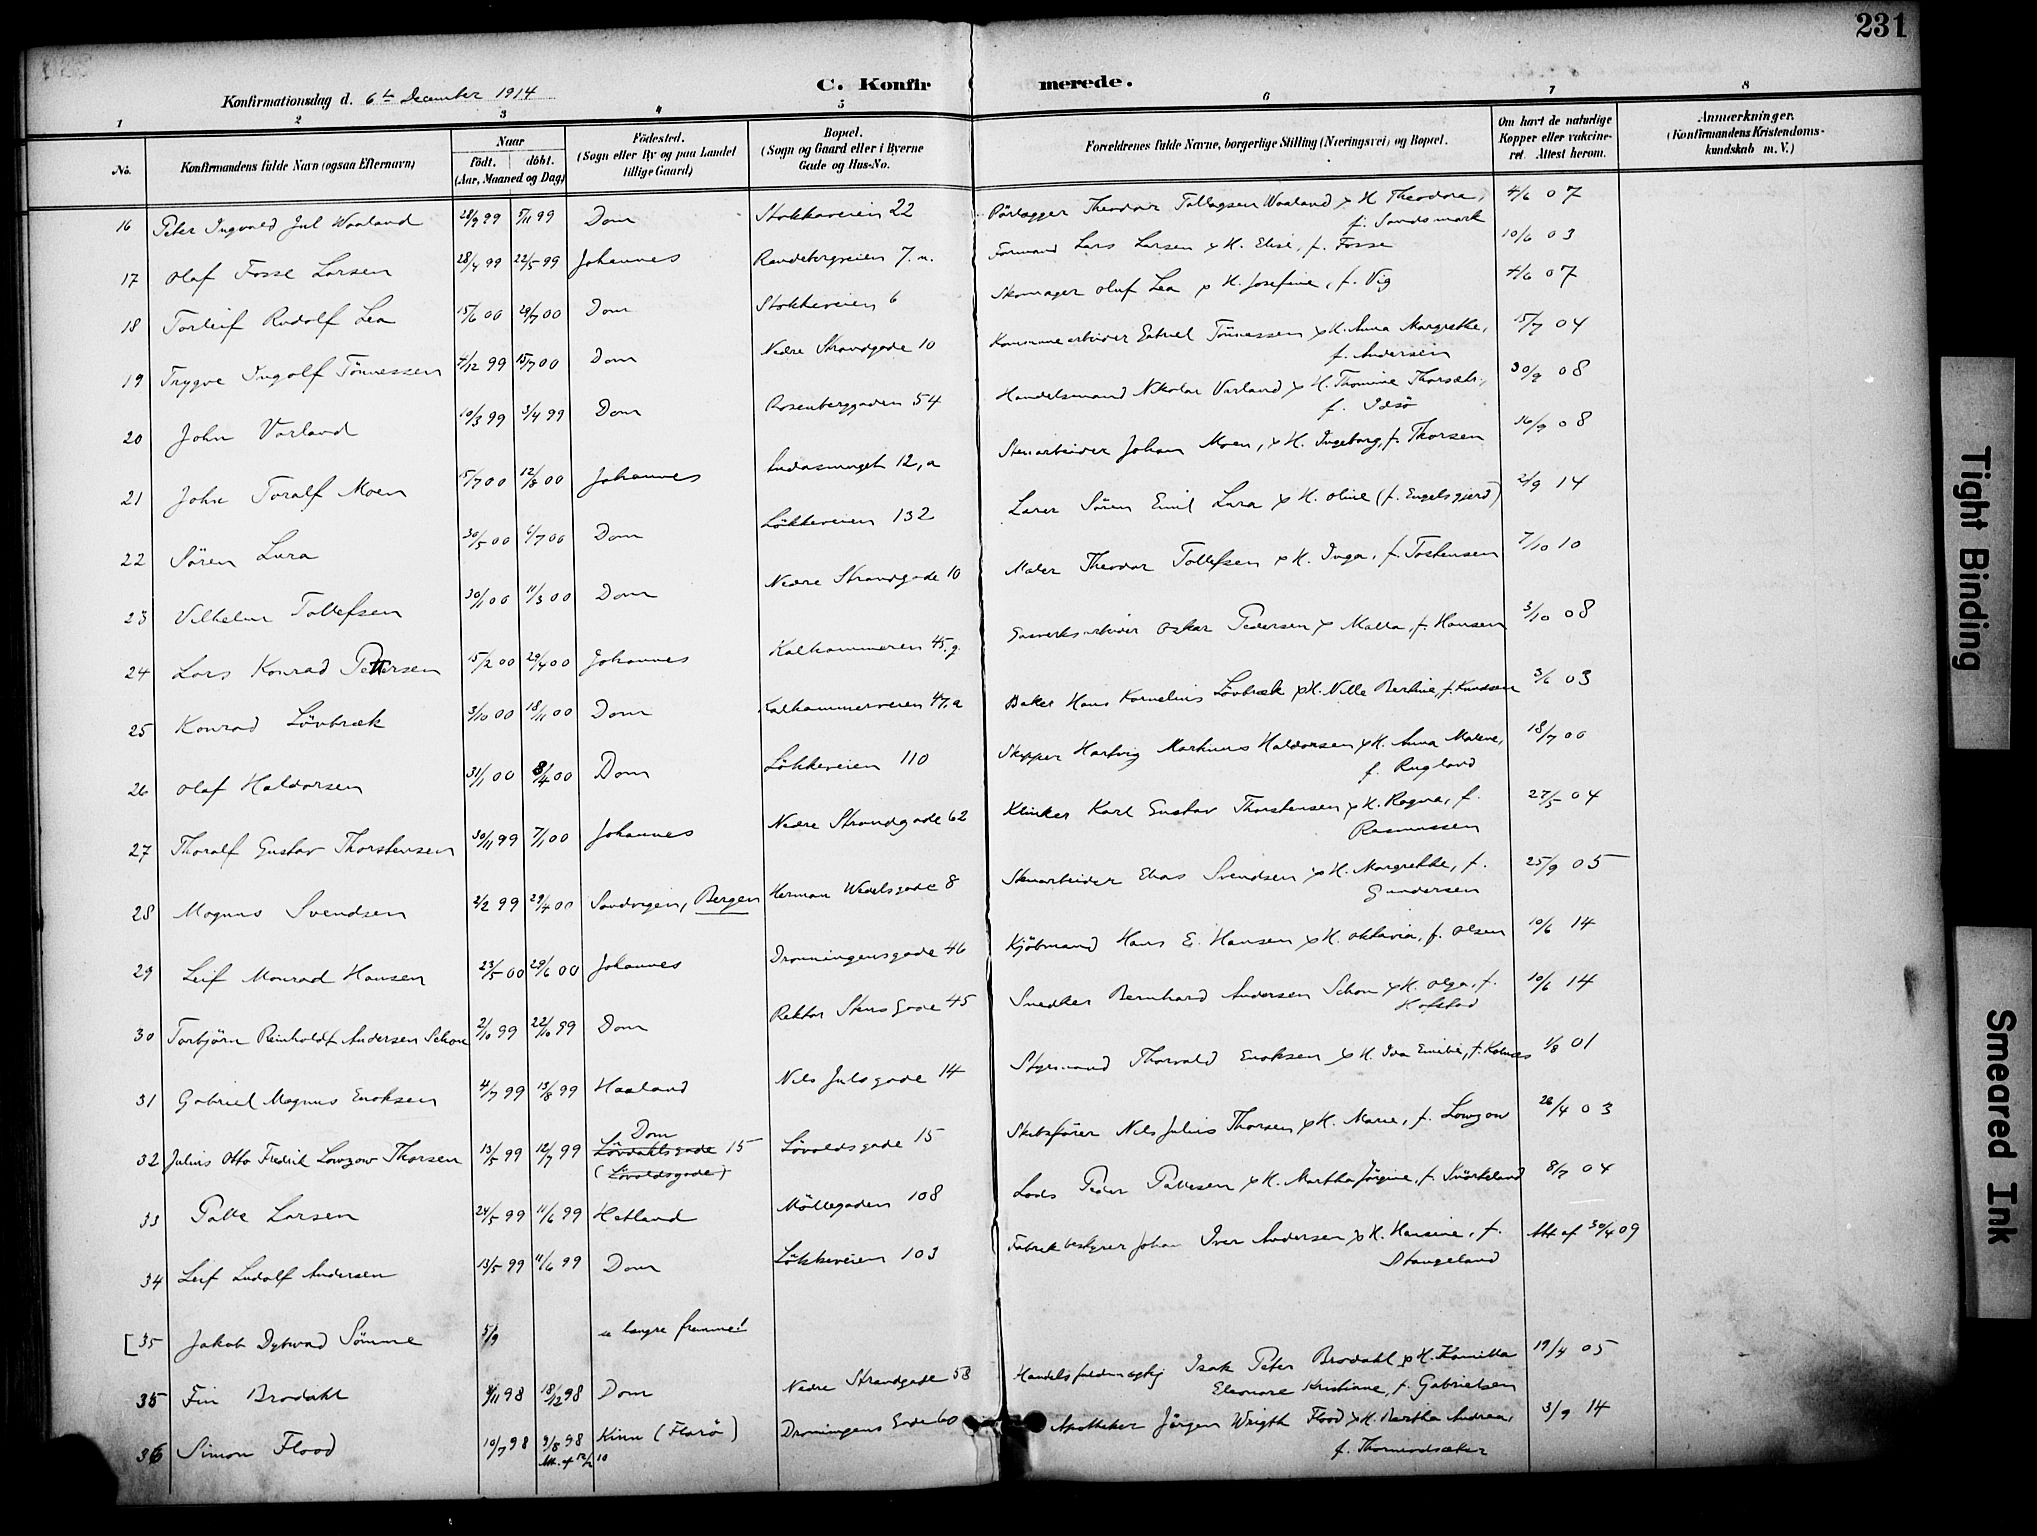 231
C. Konfirmerede.
Konfirmationsdag d. 6te December 1914
1 2 3 4 5 6 7 8
No.
Konfirmandens fulde Navn (ogsaa Efternavn)
Naar
födt. döbt.
(Aar, Maaned og Dag)
Födested.
(Sogn eller By og paa Landet
tillige Gaard)
Bopæl.
(Sogn og Gaard eller i Byerne
Gade og Hus-No.
Forældrenes fulde Navne, borgerlige Stilling (Næringsvei) og Bopæl.
Om havt de naturlige
Kopper eller vakcine-
ret. Attest herom.
Anmærkninger.
(Konfirmandens Kristendoms-
kundskab m. V.)
16 Peter Ingvald Jul Waaland 28/9 99 5/11 99 Dom Stokkaveien 22 Theodor Tollagsen Waaland x H. Theodora, 4/6 07
f. Sandsmark
17 Olaf Fosse Larsen 28/4 99 22/5 99 Johannes Randebergveien 7. Formand Lars Larsen x H. Elise, f. Fosse 10/6 03
18 Torleif Rudolf Lea 15/6 00 29/7 00 Dom Stokkeveien 6 Skomager Oluf Lea x H. Josefine, f. Vig 4/6 07
19 Trygve Ingolf Tönnessen 4/12 99 15/7 00 Dom Nedre Strandgade 10 Kommunearbeider Gabriel Tönnessen x H. Anna Margrethe, 15/7 04
f. Andersen
20 John Varland 10/3 99 3/4 99 Dom Rosenberggaden 54 Handelsmand Nikolai Varland x H. Thomine 30/9 08
f. Idsö
21 John Toralf Moen 15/7 00 12/8 00 Johannes 12, a Stenarbeider Johan Moen, x H. Ingeborg, f. Thorsen 16/9 08
22 Sören Lura 30/5 00 1/7 00 Dom Lökkeveien 132 Lærer Sören Emil Lura x H. Oline (f. Engelsgjerd) 2/9 14
23 Vilhelm Tollefsen 30/1 00 11/3 00 Dom Nedre Strandgade 10 Maler Theodor Tollefsen x H. Inga, f. Tostensen 7/10 10
24 Lars Konrad Pettersen 15/2 00 29/4 00 Johannes Kalhammeren 45. g Gasverksarbeider Oskar Pedersen x Malla, f. Hansen 3/10 08
25 Konrad Lövbræk 3/10 00 18/11 00 Dom Kalhammerveien 47. a Baker Hans Kornelius Lövbræk x H. Nille Bertine, f. Knudsen 3/6 03
26 Olaf Haldorsen 31/1 00 8/4 00 Dom Lökkeveien 110 Skipper Hartvig Markus Haldorsen x H. Anna Malene, 18/7 00
f. Rugland
27 Thoralf Gustav Thorstensen 30/11 99 7/1 00 Johannes Nedre Strandgade 62 Klinker Karl Gustav Thorstensen x H. Ragna, f. 27/5 04
Rasmussen
28 Magnus Svendsen 2/2 99 29/4 00 Sandvigen, Bergen Herman Wedelsgade 8 Stenarbeider Elias Svendsen x H. Margrethe, f. 25/9 05
Gundersen
29 Leif Monrad Hansen 23/5 00 29/6 00 Johannes Dronningensgade 46 Kjöbmand Hans E. Hansen x H. Oktavia, f. Olsen 10/6 14
30 Torbjörn Reinholdt Andersen Schou 2/10 99 22/10 99 Dom Rektor Stens Gade 45 Snedker Bernhard Andersen Schou x H. Olga, f. 10/6 14
Hofstad
31 Gabriel Magnus Enoksen 4/7 99 13/8 99 Haaland Nils Julsgade 14 Styrmand Thorvald Enoksen x H. Ida Emilie, f. 1/8 01
32 Julius Otto Fredrik Lowzow Thorsen 13/5 99 12/7 99 Dom
Lövdahlsgade 15
(Lövoldsgade) Lövoldsgade 15 Skibsförer Nils Julius Thorsen x H. Marie, f. Lowzow 26/4 03
33 Palle Larsen 24/5 99 11/6 99 Hetland Möllegaden 108 Lods Peder Pallesen x H. Martha Jörgine, f. 8/7 04
34 Leif Ludolf Andersen 13/5 99 11/6 99 Dom Lökkeveien 103 Fabrikbestyrer Johan Iver Andersen x H. Hansine, f. Att. af 30/4 09
Stangeland
[35 Jakob Dybwad Sömme 5/9 længre fremme!
35 Fin Brodahl /11 98 18/12 98 Dom Nedre Strandgade 58 Handelsfuldmægtig Isak Peter Brodahl x H. Kamilla 19/4 05
Eleonore Kristiane, f. Gabrielsen
36 Simon Flood 10/7 98 9/8 98 Kinn (Florö) Dronningens Gade 60 Apotheker Jörgen Wrigth Flood x H. Martha Andrea, 3/9 14
Att. af 12/2 10 f. Thormodsæter
Tight Binding
Smeared Ink